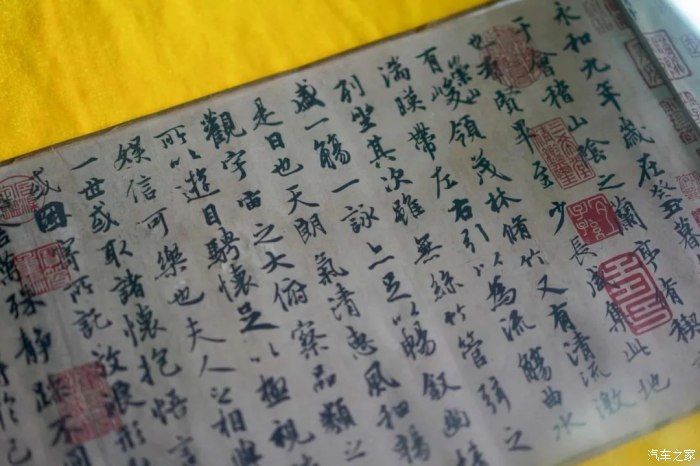 永和九年歲在癸丑暮
于會稽山陰之蘭亭脩稧
也羣賢畢至少長咸集此地
有崇山峻領茂林脩竹又有清流激
湍暎帶左右引以為流觴曲水
列坐其次雖無絲竹管弦之
盛一觴一詠亦足以暢叙幽情
是日也天朗氣清惠風和暢
觀宇宙之大俯察品類之
所以遊目騁懷足以極視
娛信可樂也夫人之相與
一世或取諸懷抱悟言
或因寄所託放浪形
萬殊靜躁不同
汽车之家